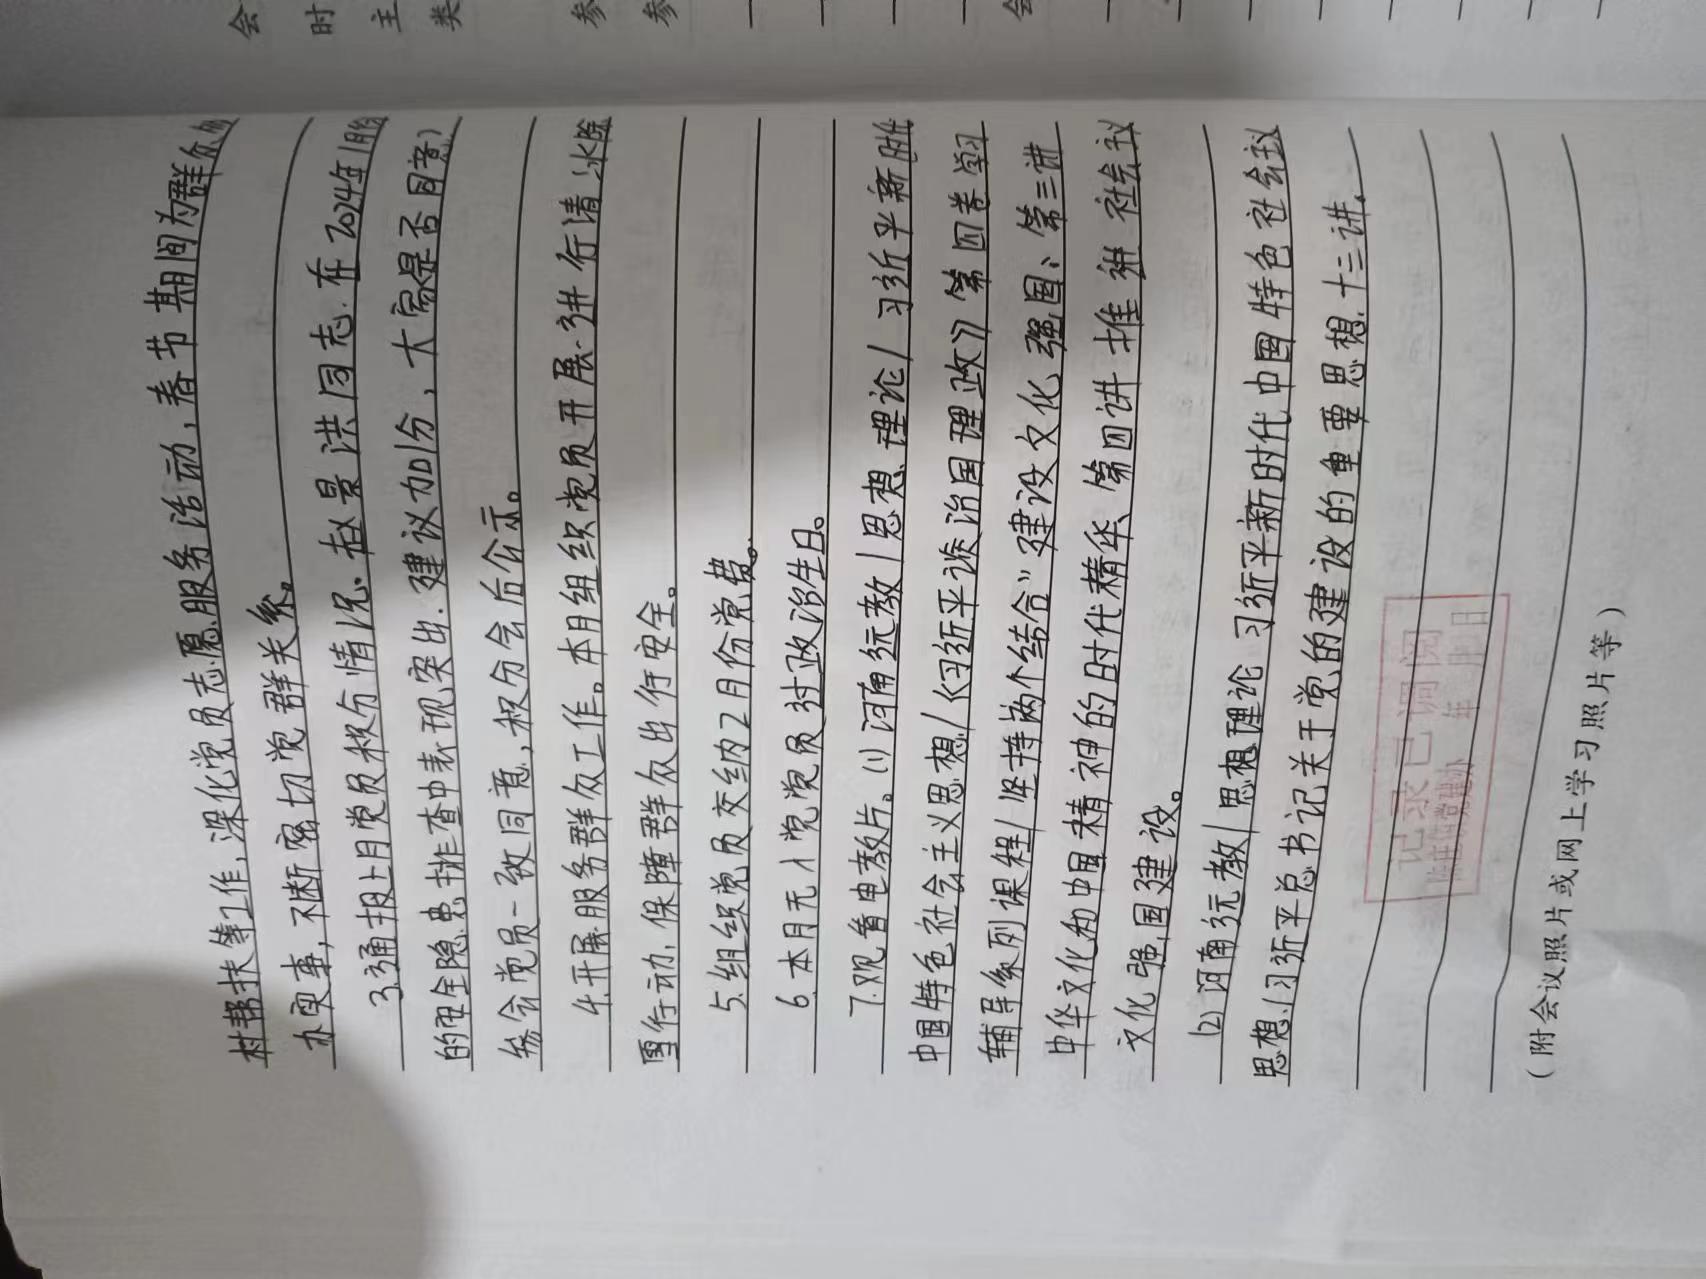 会
时
主
类
参
参
会
村帮扶等工作,深化党员志愿服务活动,春节期间为群众
办实事,不断密切党群关系。
3.通报上月党员积分情况。赵景洪同志.在2024年1月份
的安全隐患排查中表现突出.建议加1分,大家是否同意?
参会党员一致同意,积分会后公示。
4.开展服务群众工作。本月组织党员开展.进行清冰除
雪行动.保障群众出行安全。
5.组织党员交纳2月份党费。
6.本月无1党党员过政治生日。
7.观看电教片。(1)河南远教/思想理论/习近平新时代
中国特色社会主义思想/《习近平谈治国理政》第四卷学习
辅导系列课程/坚持“两个结合”建设文化强国:第三讲
中华文化和中国精神的时代精华、第四讲 推进社会主义
文化强国建设。
(2)河南远教/思想理论 习近平新时代中国特色社会主义
思想.习近平总书记关于党的建设的重要思想.十三讲。
记录已调阅
年 月 日
(附会议照片或网上学习照片等)